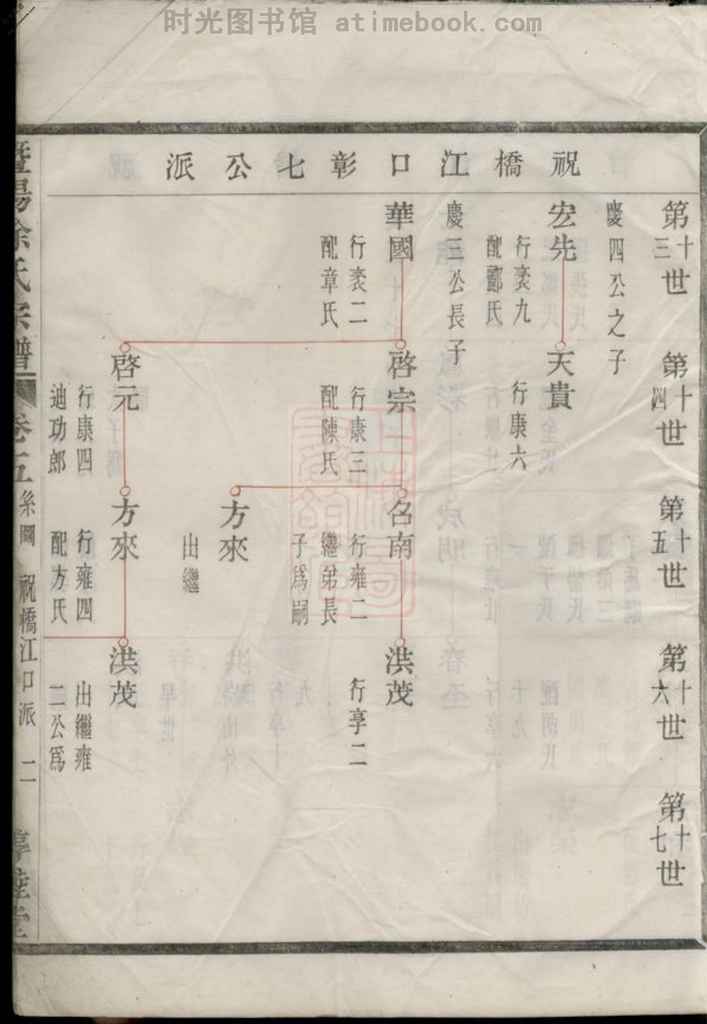 时光图书馆 - atimebook.com
祝橋江口彰七公派
第十三世
第十四世
第十五世
第十六世
第十七世
慶四公之子
宏先
行袠九
配酈氏
天貴
行康六
慶三公長子
華國
行袠二
配章氏
啓宗
行康三
配陳氏
名南
行雍二
繼弟長
子為嗣
洪茂
行享二
方來
出繼
啓元
行康四
迪功郎
方來
行雍四
配方氏
洪茂
出繼雍
二公為
暨陽徐氏宗譜
卷五
系圖
祝橋江口派
二